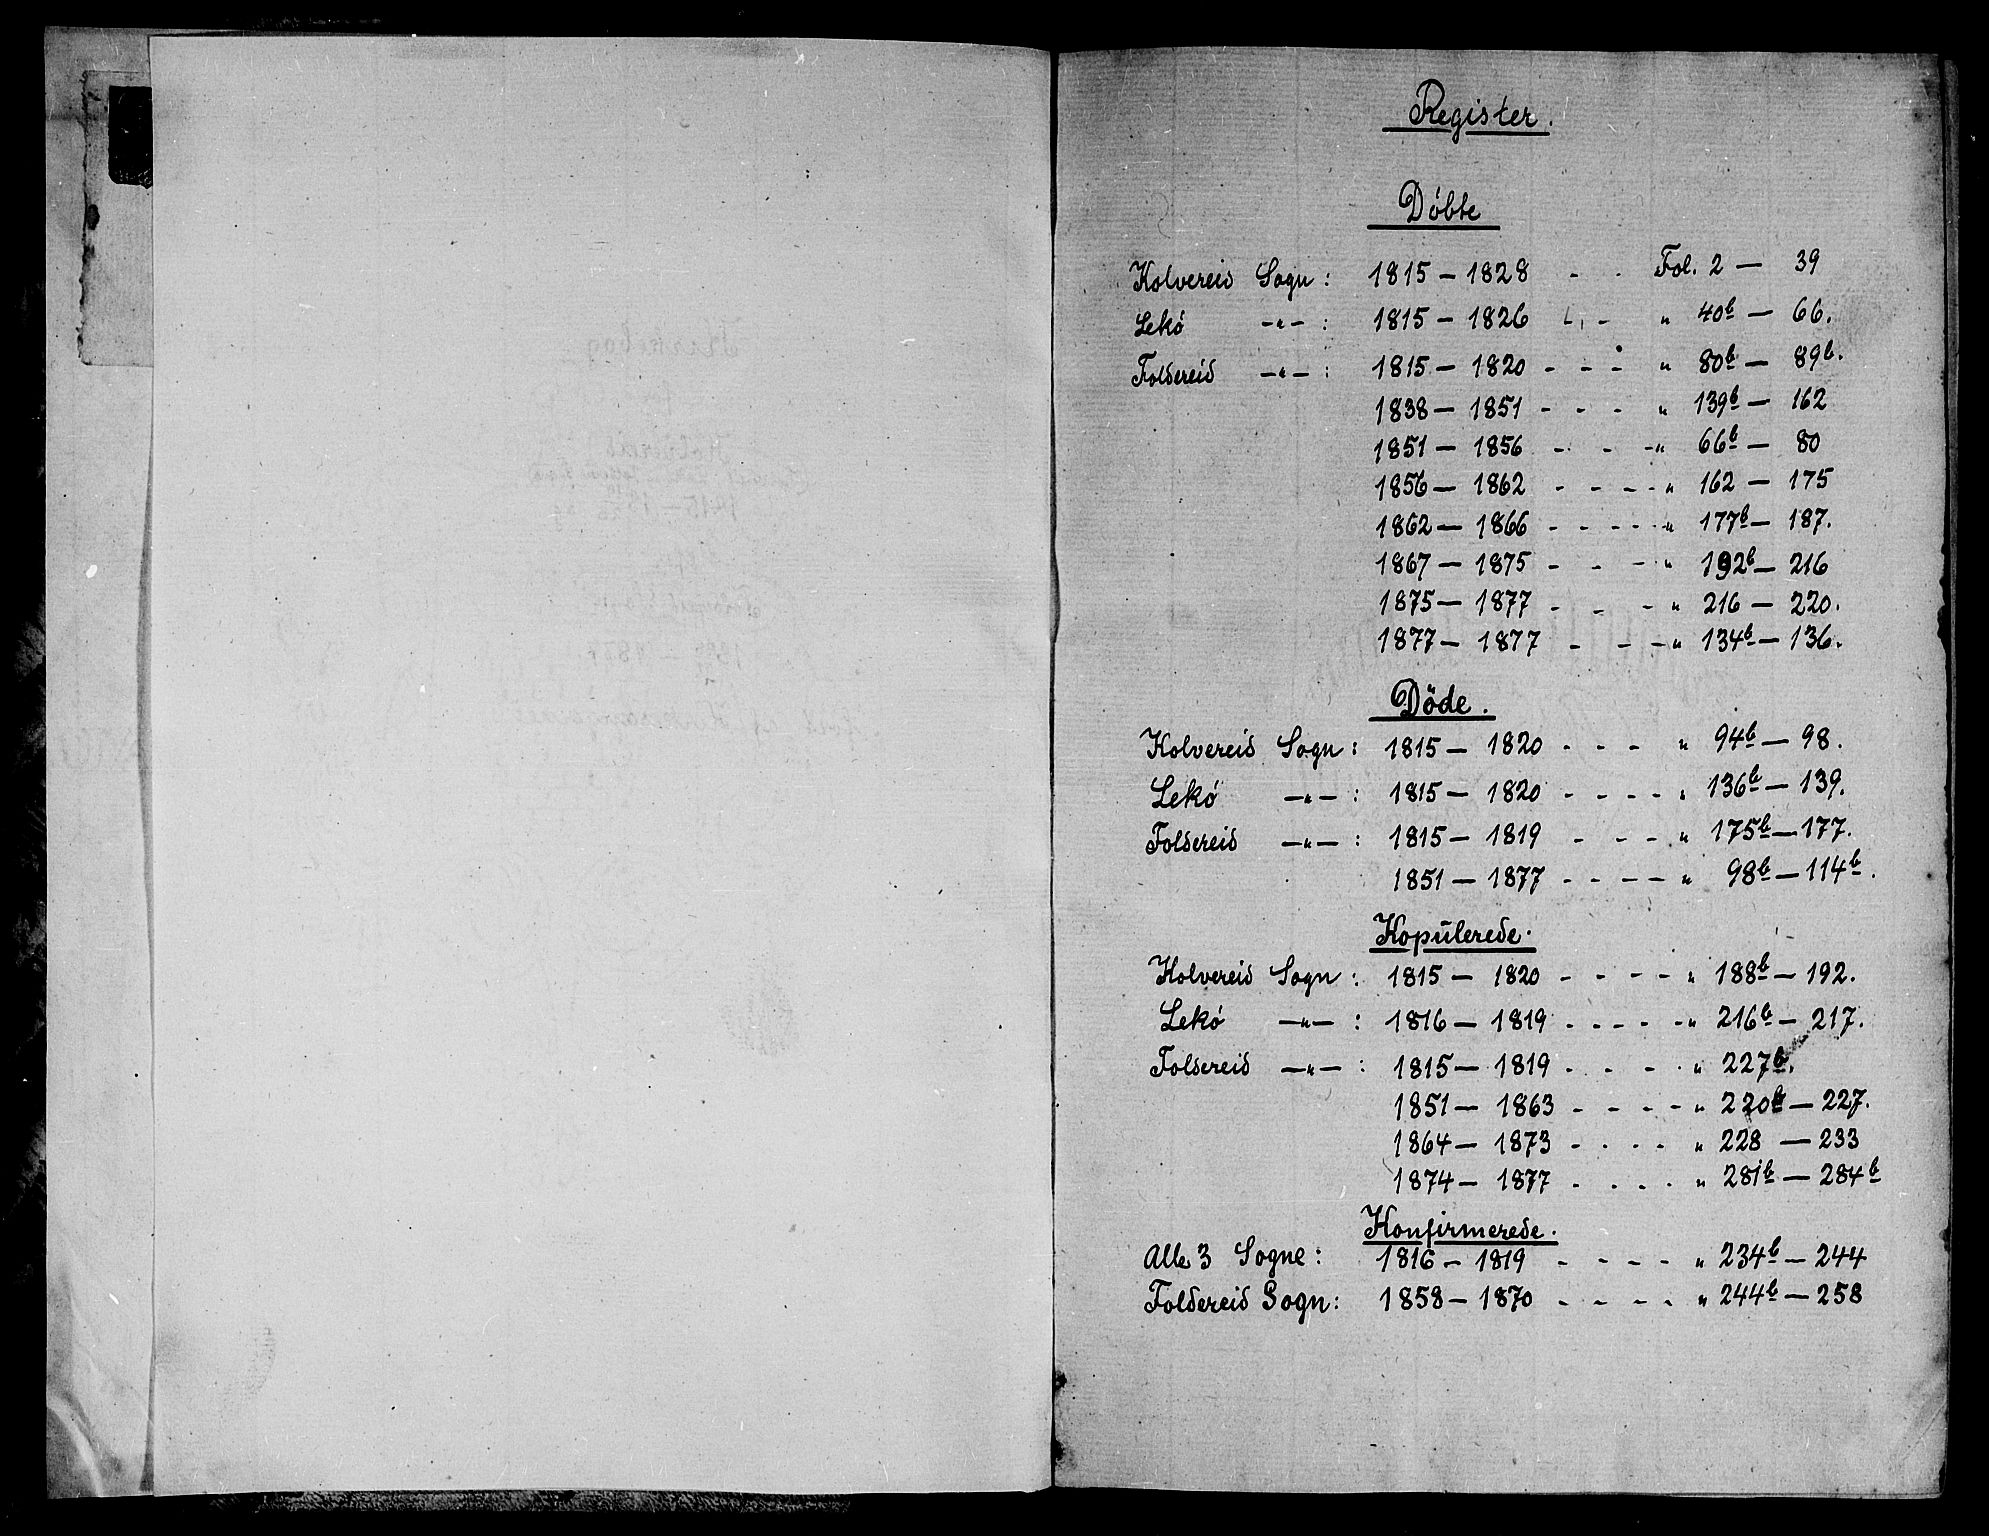 Register.
Döbte
Kolvereid Sogn: 1815 - 1828 - - Fol. 2 — 39
Lekö —"— : 1815 - 1826 - " 40b — 66.
Foldereid —"— : 1815 - 1820 - - - " 80b — 89b.
1838 - 1851 - - - " 139b — 162
1851 - 1856 - - - " 66b — 80
1856 - 1862 - - - - " 162 — 175
1862 - 1866 - - - - " 177b — 187.
1867 - 1875 - - - " 192b — 216
1875 - 1877 - - - " 216 — 220.
1877 - 1877 - - - " 134b — 136.
Döde.
Kolvereid Sogn: 1815 - 1820 - - - " 94b — 98.
Lekö —"— : 1815 - 1820 - - - - " 136b — 139.
Foldereid —"— : 1815 - 1819 - - - " 175b — 177.
1851 - 1877 - - - - " 98b — 114b.
Kopulerede.
Kolvereid Sogn: 1815 - 1820 - - - - " 188b — 192.
Lekö —"— : 1816 - 1819 - - - - " 216b — 217.
Foldereid —"— : 1815 - 1819 - - - - " 227b.
1851 - 1863 - - - - " 220b — 227.
1864 - 1873 - - - - " 228 — 233
1874 - 1877 - - - - " 281b — 284b
Konfirmerede.
Alle 3 Sogne: 1816 - 1819 - - - - " 234b — 244
Foldereid Sogn: 1858 - 1870 - - - - " 244b — 258